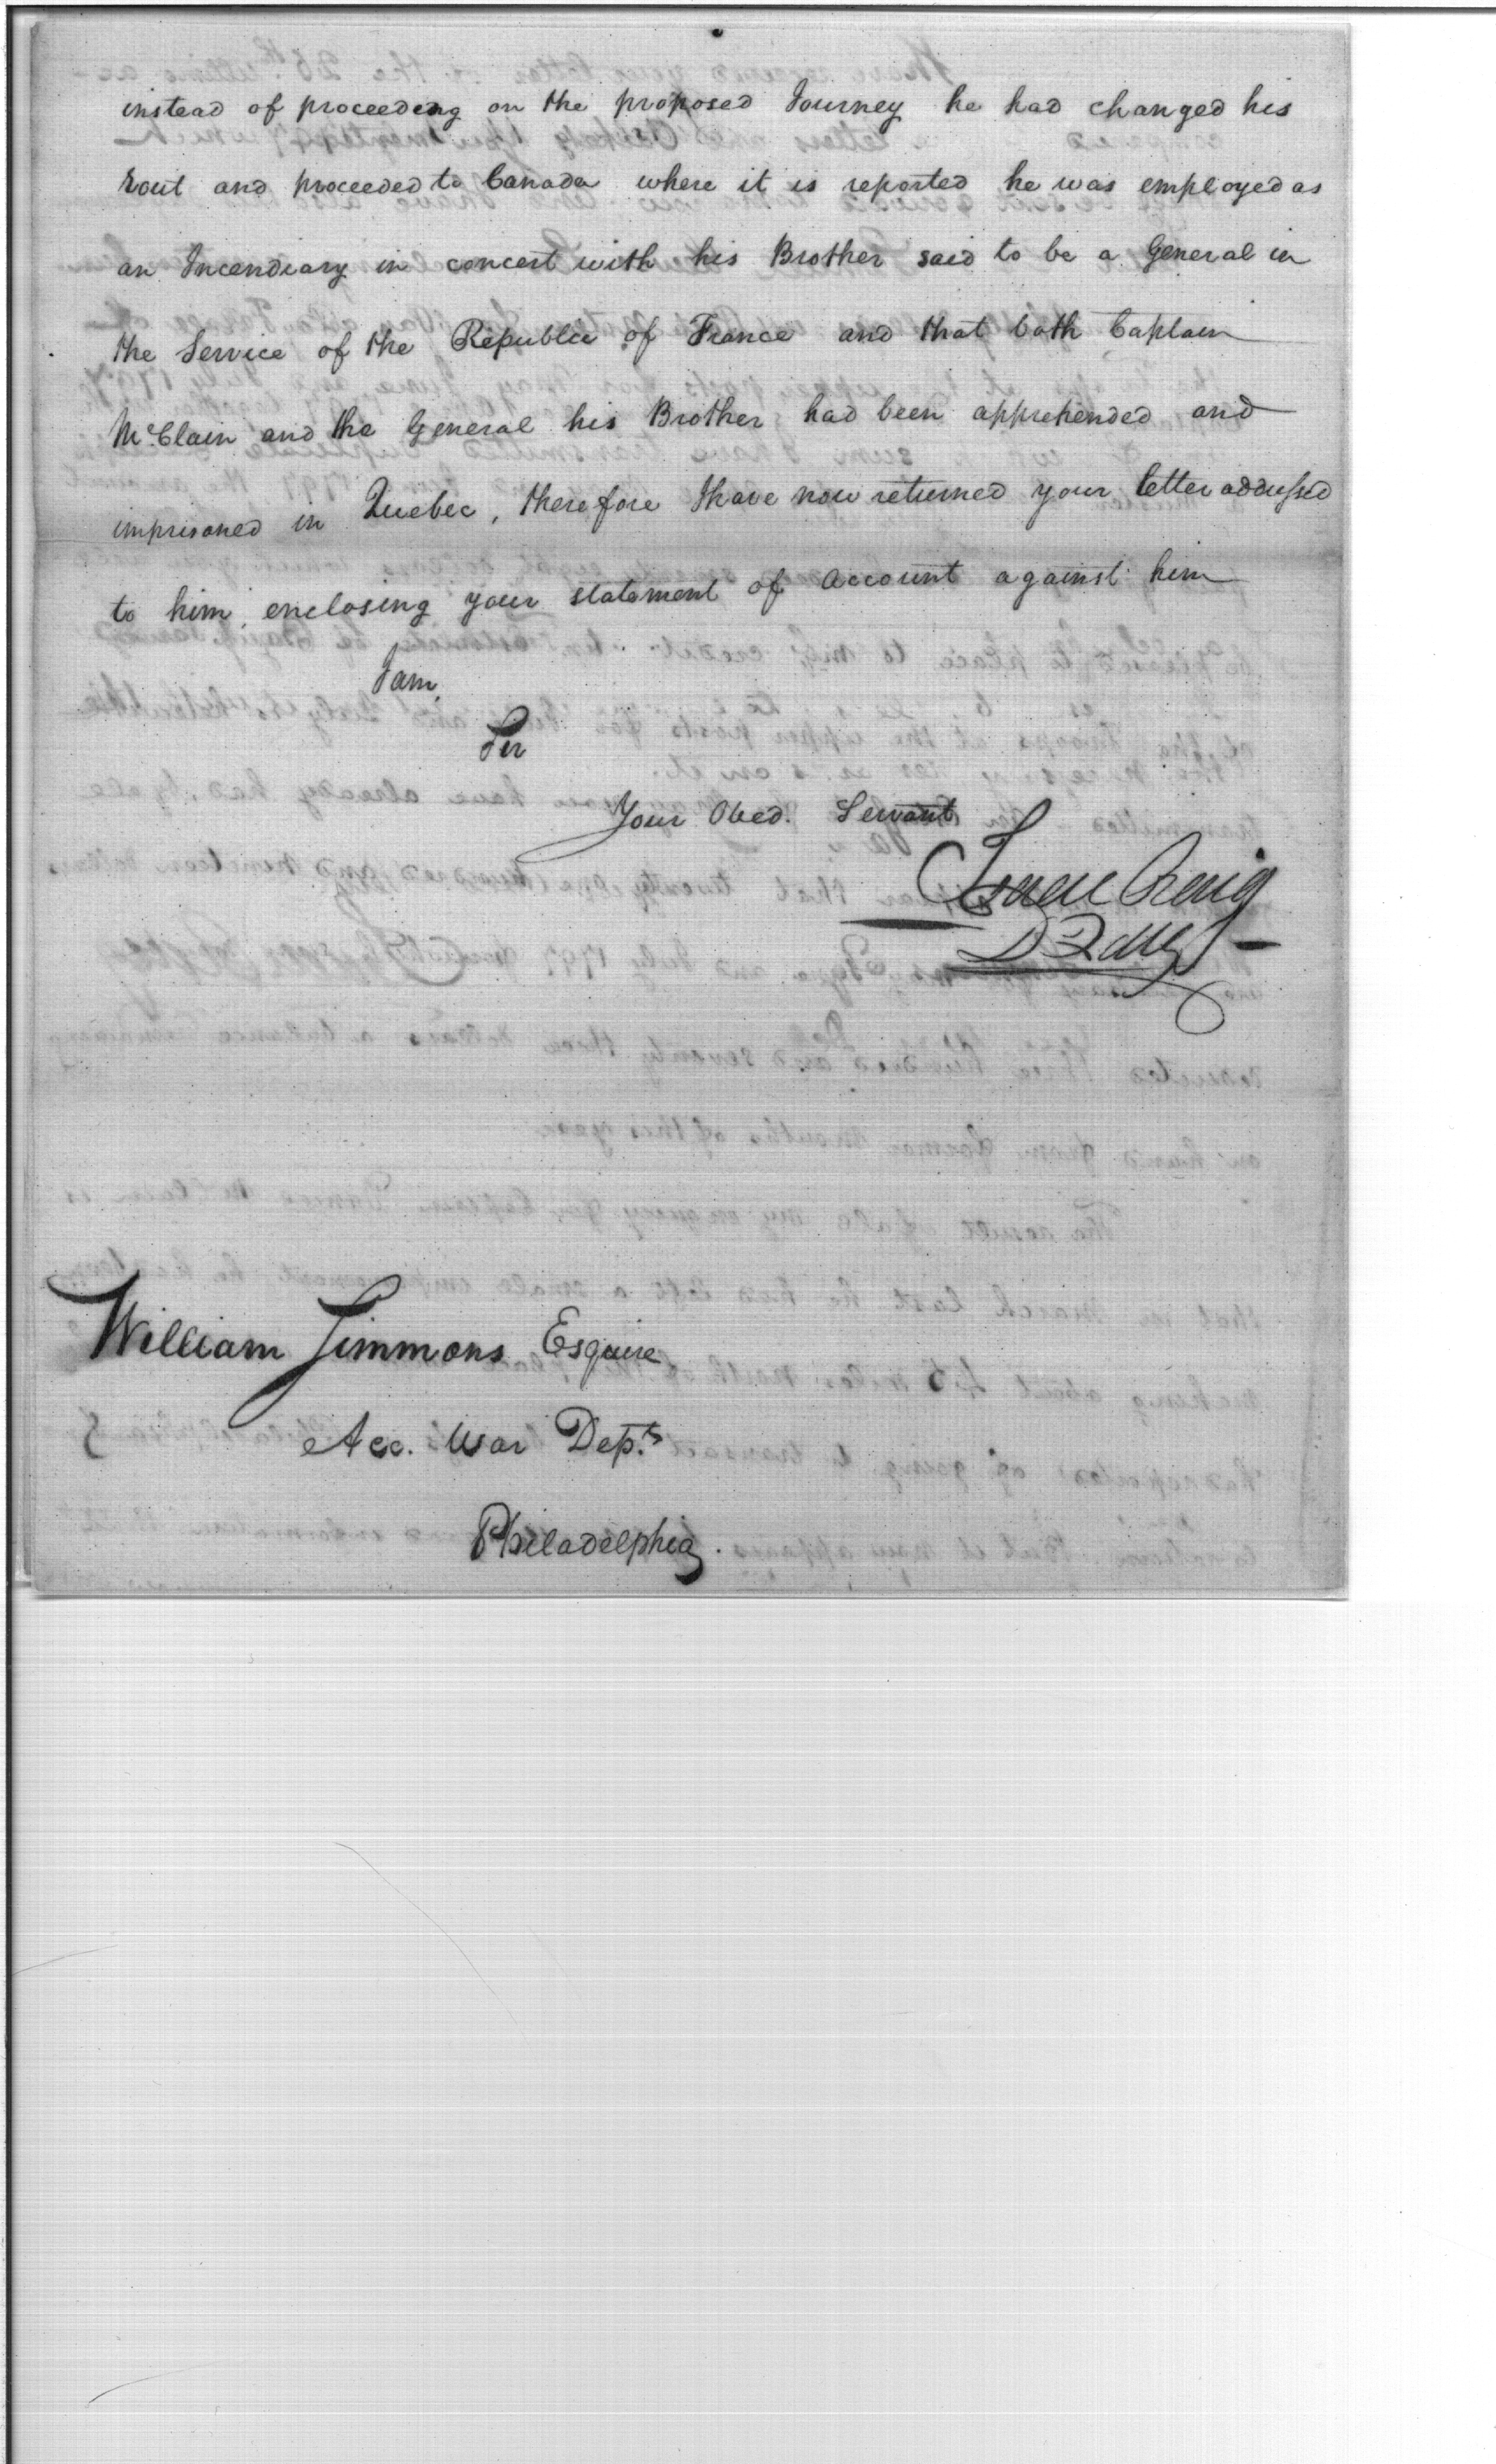 instead of proceeding on the proposed Journey he had changed his
rout and proceeded to Canada where it is reported he was employed as
an Incendiary in concert with his Brother said to be a General in
the Service of the Republic of France and that both Captain
McClain and the General his Brother had been apprehended and
imprisoned in Quebec, therefore I have now returned your letter addressed
to him, enclosing your statement of Account against him
I am,
Sir
Your Obed. Servant
Isaac Craig
DQMG
William Simmons Esquire
Acc. War Dept.
Philadelphia.